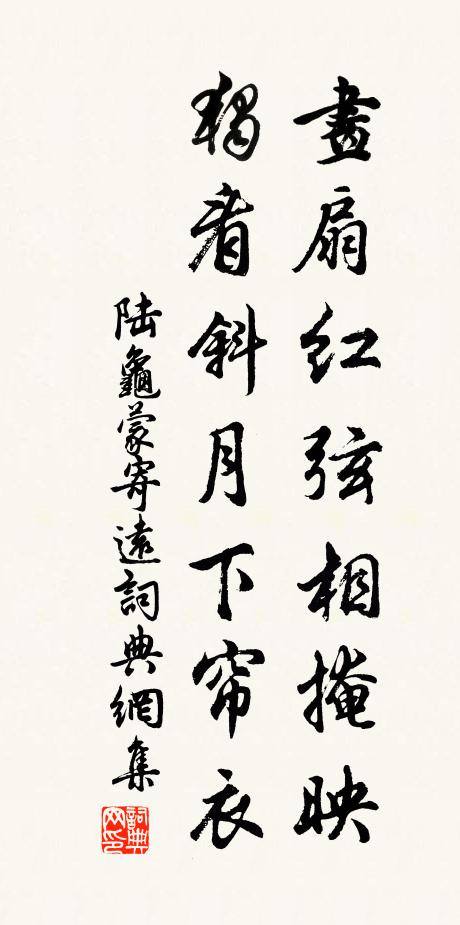 畫扇紅弦相掩映
獨看斜月下帘衣
陆龜蒙寄遠詞典網集
詞典网印